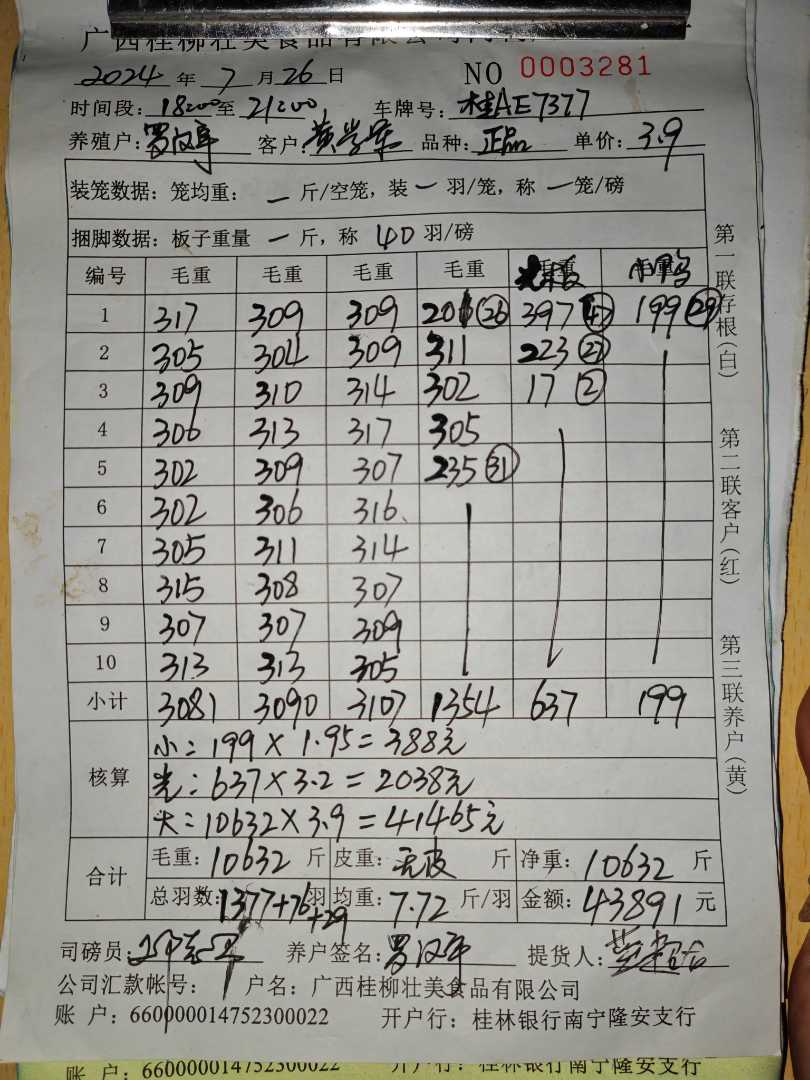 广西桂柳壮美食品有限公司
2024年7月26日 NO 0003281
时间段：18:00至21:00 车牌号：桂AE7377
养殖户：罗汉宁 客户： 品种：正品 单价：3.9
装笼数据：笼均重：一斤/空笼，装一羽/笼，称一笼/磅
捆脚数据：板子重量一斤，称40羽/磅
编号 毛重 毛重 毛重 毛重
1 317 309 309 201 (26) 397 (47) 199 (29)
2 305 304 309 311 223 (27)
3 309 310 314 302 17 (2)
4 306 313 317 305
5 302 309 307 235 (31)
6 302 306 316
7 305 311 314
8 315 308 307
9 307 307 309
10 313 313 305
小计 3081 3090 3107 1354 637 199
核算
小：199×1.95=388元
光：637×3.2=2038元
大：10632×3.9=41465元
合计
毛重：10632斤 皮重：无皮斤 净重：10632斤
总羽数：1377+76+29羽 均重：7.72斤/羽 金额：43891元
司磅员： 养户签名：罗汉宁 提货人：
公司汇款帐号： 户名：广西桂柳壮美食品有限公司
账 户：660000014752300022 开户行：桂林银行南宁隆安支行
账 户：660000014752300022 开户行：桂林银行南宁隆安支行
第一联存根（白）
第二联客户（红）
第三联养户（黄）